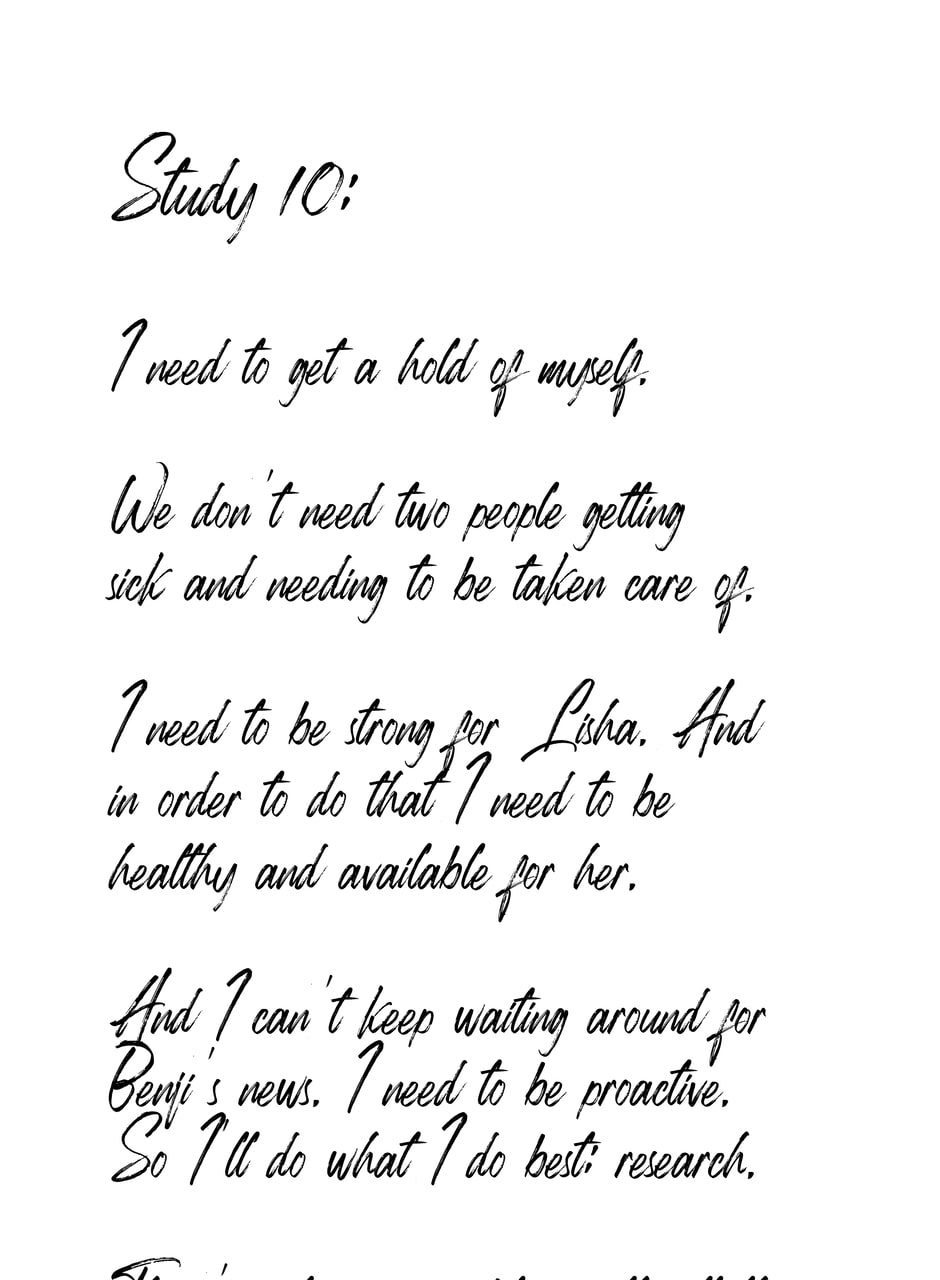 Study 10:
I need to get a hold of myself.
We don't need two people getting
sick and needing to be taken care of.
I need to be strong for Lisha. And
in order to do that I need to be
healthy and available for her.
And I can't keep waiting around for
Benji's news. I need to be proactive.
So I'll do what I do best: research.